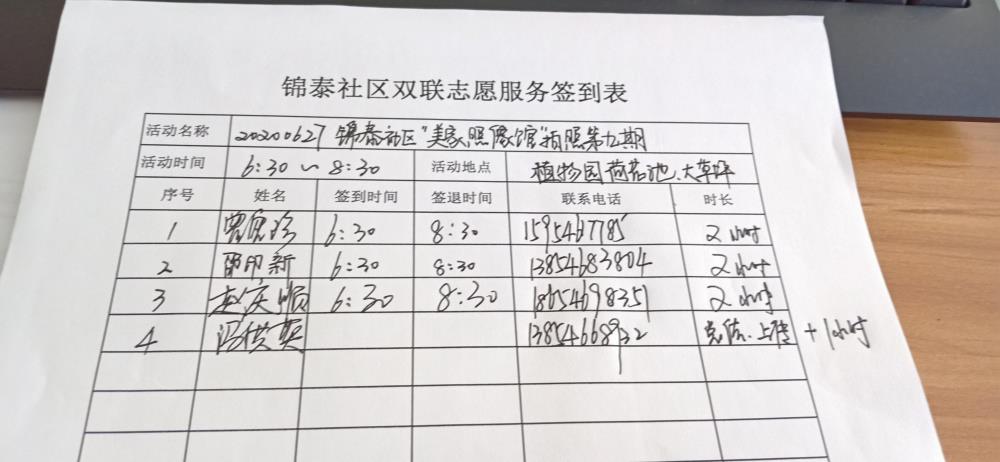 锦泰社区双联志愿服务签到表
活动名称 20200627 锦泰社区"美家照像馆"拍照第九期
活动时间 6:30 ~ 8:30 活动地点 植物园荷花池、大草坪
序号 姓名 签到时间 签退时间 联系电话 时长
1 6:30 8:30 2小时
2 新 6:30 8:30 13854683804 2小时
3 赵庆顺 6:30 8:30 18654698351 2小时
4 冯洪英 13854668932 上传 +1小时